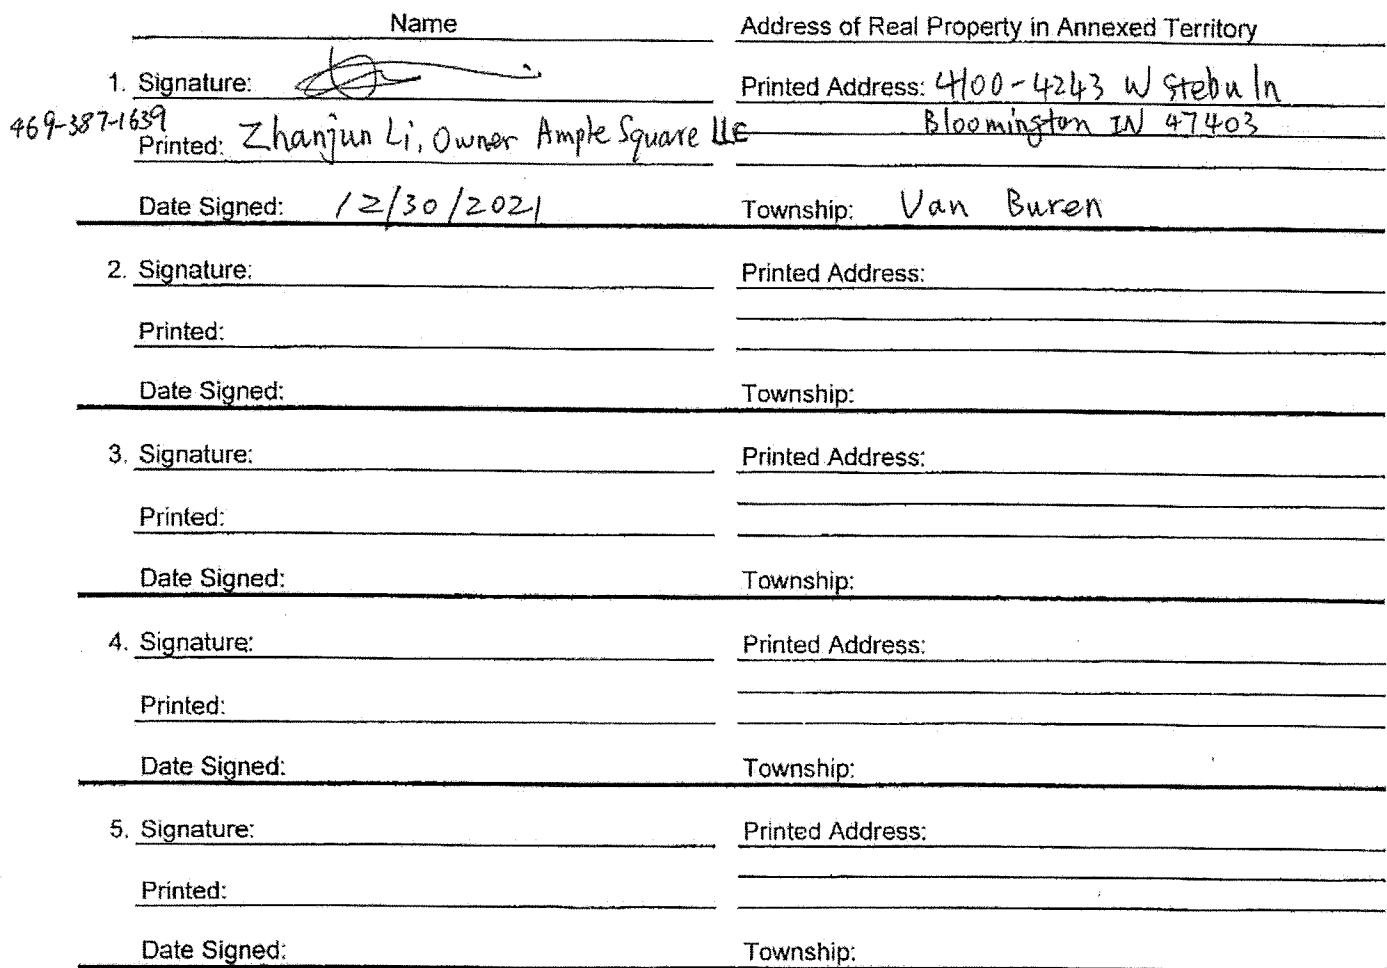 Name
Address of Real Property in Annexed Territory
1. Signature:
Printed Address: 4100-4243 W Stebu ln
Bloomington IN 47403
469-387-1639
Printed: Zhanjun Li, Owner Ample Square LLC
Date Signed: 12/30/2021
Township: Van Buren
2. Signature:
Printed Address:
Printed:
Date Signed:
Township:
3. Signature:
Printed Address:
Printed:
Date Signed:
Township:
4. Signature:
Printed Address:
Printed:
Date Signed:
Township:
5. Signature:
Printed Address:
Printed:
Date Signed:
Township: